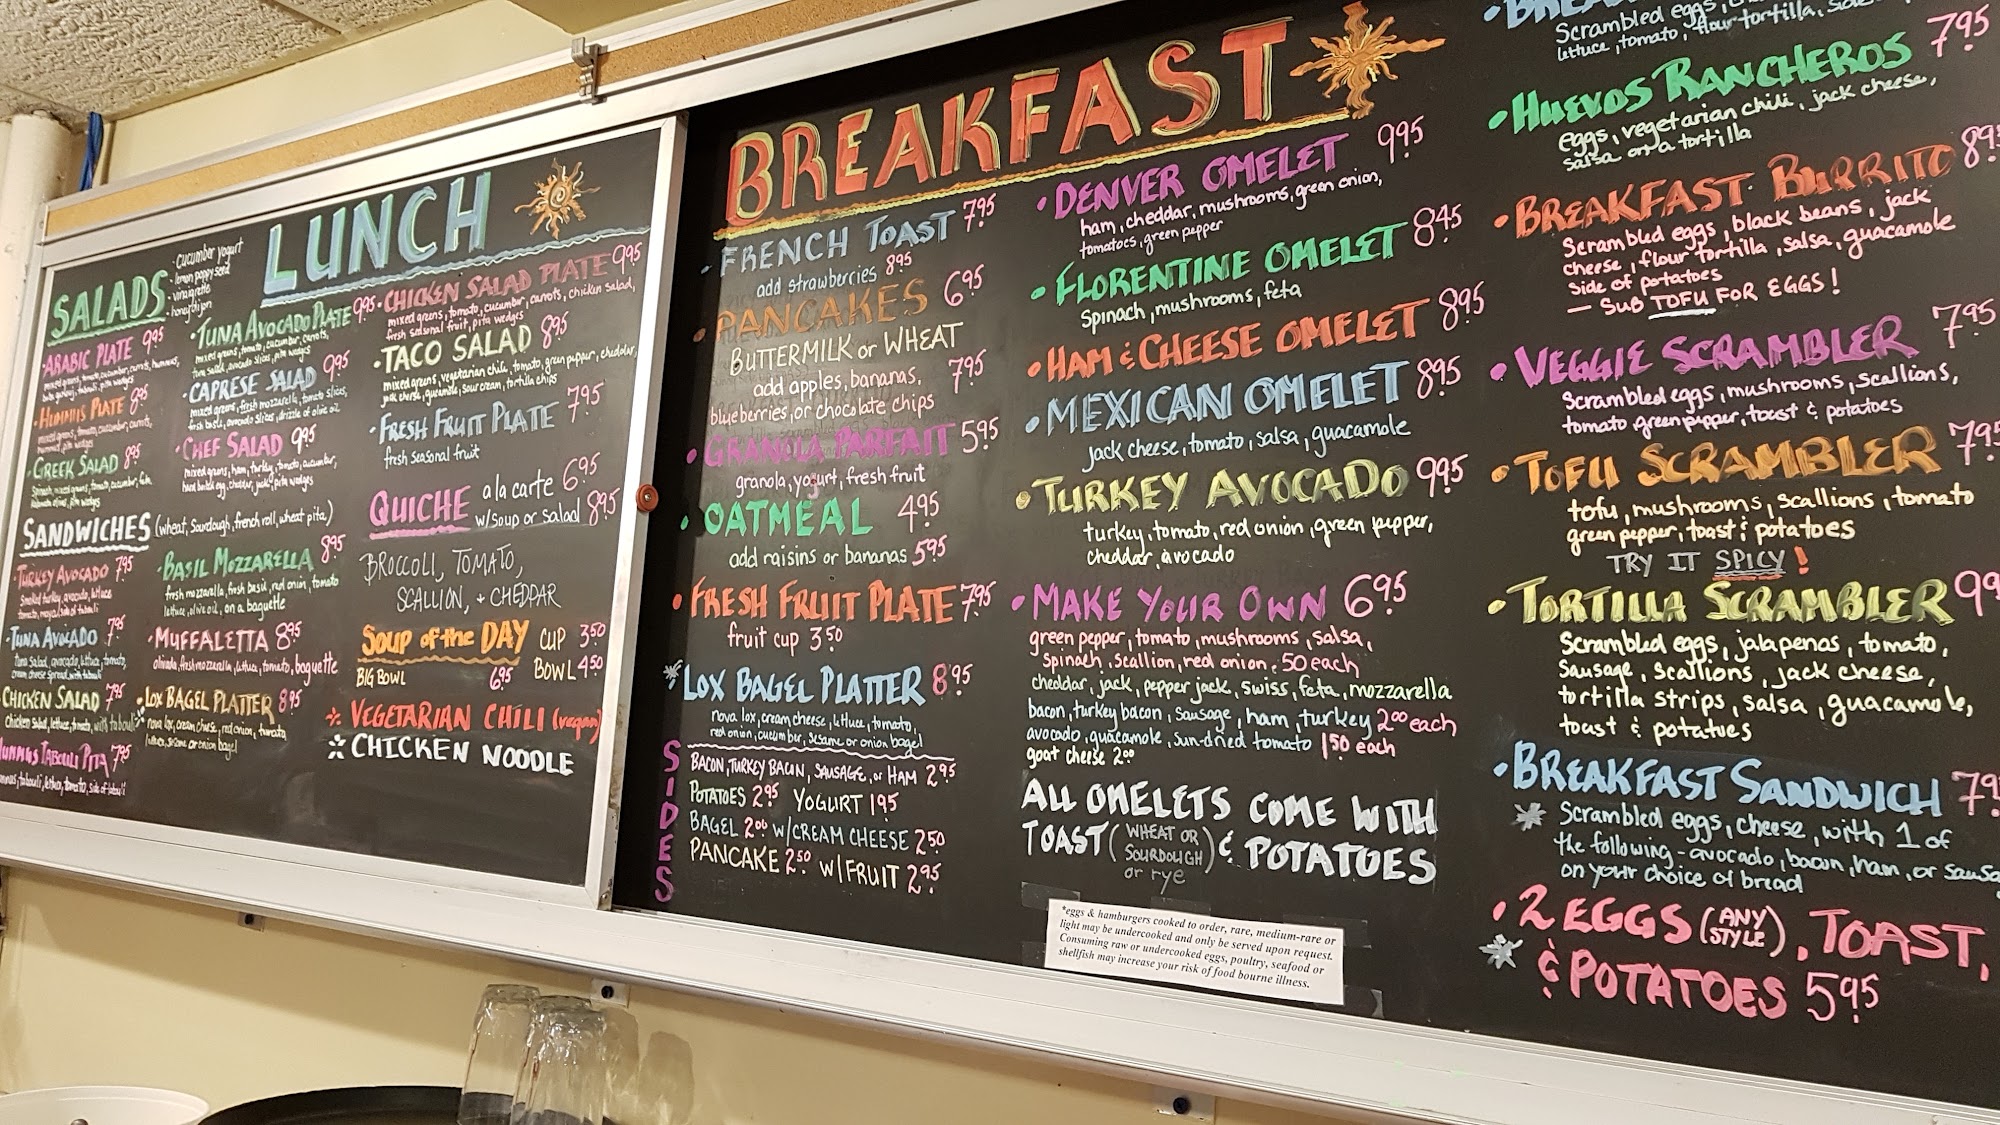 LUNCH
SALADS
- cucumber yogurt
- lemon poppyseed
- vinaigrette
- honey dijon
• ARABIC PLATE 9.95
mixed greens, tomato, cucumber, carrots, hummus,
baba ganouj, tabouli, pita wedges
• HUMMUS PLATE 8.95
mixed greens, tomato, cucumber, carrots,
hummus, pita wedges
• GREEK SALAD 8.95
Spinach, mixed greens, tomato, cucumber, feta,
kalamata olives, pita wedges
• TUNA AVOCADO PLATE 9.95
mixed greens, tomato, cucumber, carrots,
tuna salad, avocado slices, pita wedges
• CAPRESE SALAD 9.95
mixed greens, fresh mozzarella, tomato slices,
fresh basil, avocado slices, drizzle of olive oil
• CHEF SALAD 9.95
mixed greens, ham, turkey, tomato, cucumber,
hard boiled egg, cheddar, jack, pita wedges
• CHICKEN SALAD PLATE 9.95
mixed greens, tomato, cucumber, carrots, chicken salad,
fresh seasonal fruit, pita wedges
• TACO SALAD 8.95
mixed greens, vegetarian chili, tomato, green pepper, cheddar,
jack cheese, guacamole, sour cream, tortilla chips
• FRESH FRUIT PLATE 7.95
fresh seasonal fruit
SANDWICHES (wheat, sourdough, french roll, wheat pita)
• TURKEY AVOCADO 7.95
Smoked turkey, avocado, lettuce
tomato, mayo/side of tabouli
• TUNA AVOCADO 7.95
tuna salad, avocado, lettuce, tomato,
cream cheese spread, with tabouli
CHICKEN SALAD 7.95
chicken salad, lettuce, tomato, with tabouli
HUMMUS TABOULI PITA 7.95
hummus, tabouli, lettuce, tomato, side of tabouli
• BASIL MOZZARELLA 8.95
fresh mozzarella, fresh basil, red onion, tomato
lettuce, olive oil, on a baguette
• MUFFALETTA 8.95
olivada, fresh mozzarella, lettuce, tomato, baguette
• LOX BAGEL PLATTER 8.95
nova lox, cream cheese, red onion, tomato,
lettuce, sesame or onion bagel
QUICHE a la carte 6.95
w/soup or salad 8.95
BROCCOLI, TOMATO,
SCALLION, + CHEDDAR
SOUP of the DAY CUP 3.50
BIG BOWL 6.95 BOWL 4.50
VEGETARIAN CHILI (vegan)
CHICKEN NOODLE
BREAKFAST
• FRENCH TOAST 7.95
add strawberries 8.95
• PANCAKES 6.95
BUTTERMILK or WHEAT
add apples, bananas, 7.95
blueberries, or chocolate chips
• GRANOLA PARFAIT 5.95
granola, yogurt, fresh fruit
• OATMEAL 4.95
add raisins or bananas 5.95
• FRESH FRUIT PLATE 7.95
fruit cup 3.50
* LOX BAGEL PLATTER 8.95
nova lox, cream cheese, lettuce, tomato,
red onion, cucumber, sesame or onion bagel
SIDES
BACON, TURKEY BACON, SAUSAGE, or HAM 2.95
POTATOES 2.95 YOGURT 1.95
BAGEL 2.00 w/CREAM CHEESE 2.50
PANCAKE 2.50 w/FRUIT 2.95
• DENVER OMELET 9.95
ham, cheddar, mushrooms, green onion,
tomatoes, green pepper
• FLORENTINE OMELET 8.45
Spinach, mushrooms, feta
• HAM & CHEESE OMELET 8.95
• MEXICAN OMELET 8.95
jack cheese, tomato, salsa, guacamole
• TURKEY AVOCADO 9.95
turkey, tomato, red onion, green pepper,
cheddar, avocado
• MAKE YOUR OWN 6.95
green pepper, tomato, mushrooms, salsa,
spinach, scallion, red onion .50 each
cheddar, jack, pepper jack, swiss, feta, mozzarella
bacon, turkey bacon, sausage, ham, turkey 2.00 each
avocado, guacamole, sun-dried tomato 1.50 each
goat cheese 2.00
ALL OMELETS COME WITH
TOAST (WHEAT OR SOURDOUGH or rye) & POTATOES
*eggs & hamburgers cooked to order, rare, medium-rare or
light may be undercooked and only be served upon request.
Consuming raw or undercooked eggs, poultry, seafood or
shellfish may increase your risk of food bourne illness.
Scrambled eggs,
lettuce, tomato, flour tortilla,
• HUEVOS RANCHEROS 7.95
eggs, vegetarian chili, jack cheese,
salsa on a tortilla
• BREAKFAST BURRITO
Scrambled eggs, black beans, jack
cheese, flour tortilla, salsa, guacamole
side of potatoes
— SUB TOFU FOR EGGS!
• VEGGIE SCRAMBLER 7.95
Scrambled eggs, mushrooms, scallions,
tomato, green pepper, toast & potatoes
• TOFU SCRAMBLER 7.95
tofu, mushrooms, scallions, tomato
green pepper, toast & potatoes
TRY IT SPICY!
• TORTILLA SCRAMBLER
Scrambled eggs, jalapenos, tomato,
sausage, scallions, jack cheese,
tortilla strips, salsa, guacamole,
toast & potatoes
• BREAKFAST SANDWICH
* Scrambled eggs, cheese, with 1 of
the following - avocado, bacon, ham, or
on your choice of bread
• 2 EGGS (ANY STYLE), TOAST,
* & POTATOES 5.95